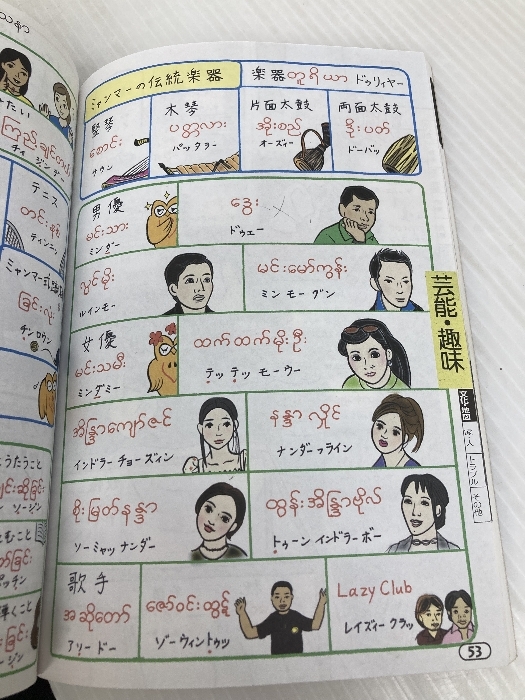 ミャンマーの伝統楽器
楽器 တူရိယာ ドゥリィヤー
竪琴
စောင်း
サウン
木琴
ပတ္တလား
パッタラー
片面太鼓
အိုးစည်
オーズィー
両面太鼓
ဒိုးပတ်
ドーパッ
男優
မင်းသား
ミンダー
ဒွေး
ドゥエー
လွင်မိုး
ルインモー
မင်းမော်ကွန်း
ミンモーグン
女優
မင်းသမီး
ミンダミー
ထက်ထက်မိုးဦး
テッテッモーウー
အိန္ဒြာကျော်ဇင်
インドラーチョーズィン
နန္ဒာလှိုင်
ナンダーフライン
စိုးမြတ်နန္ဒာ
ソーミャッナンダー
ထွန်းအိန္ဒြာဗိုလ်
トゥーンインドラーボー
歌手
အဆိုတော်
アソードー
ဇော်ဝင်းထွဋ်
ゾーウィントゥッ
Lazy Club
レイズィークラッ
芸能・趣味
文化地図
トラブル
その他
53
テニス
တင်းနစ်
テインニッ
ခြင်းလုံး
チンロウン